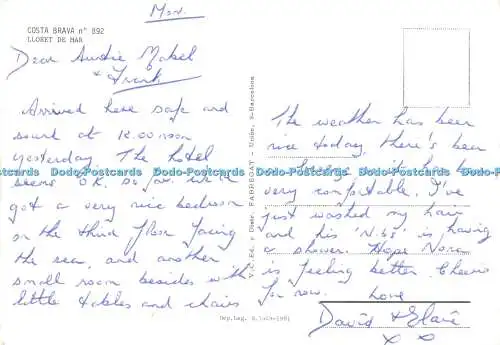 Mon.
COSTA BRAVA nº 892
LLORET DE MAR
Dear Auntie Mabel
+ Frank
Arrived here safe and
sound at 12.00 noon
yesterday. The hotel
seems OK. so far we've
got a very nice bedroom
on the third floor facing
the sea, and another
small room besides with
little tables and chairs
The weather has been
nice today, there's been
it has been
very comfortable. I've
just washed my hair
and his 'N.bs' is having
a shower. Hope Nora
is feeling better. Cheerio
for now. Love
David + Elaine
x x
Dodo-Postcards Dodo-Postcards Dodo-Postcards Dodo-Postcards Dodo-Postcards
Dodo-Postcards Dodo-Postcards Dodo-Postcards Dodo-Postcards
FABREGAT
Dep. Leg. B.